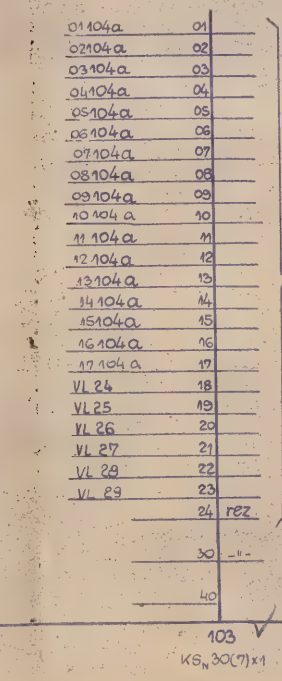 01104a 01
02104a 02
03104a 03
04104a 04
05104a 05
06104a 06
07104a 07
08104a 08
09104a 09
10104a 10
11104a 11
12104a 12
13104a 13
14104a 14
15104a 15
16104a 16
17104a 17
VL 24 18
VL 25 19
VL 26 20
VL 27 21
VL 28 22
VL 29 23
24 rez
30 -"-
40
103
KSN 30(7)x1